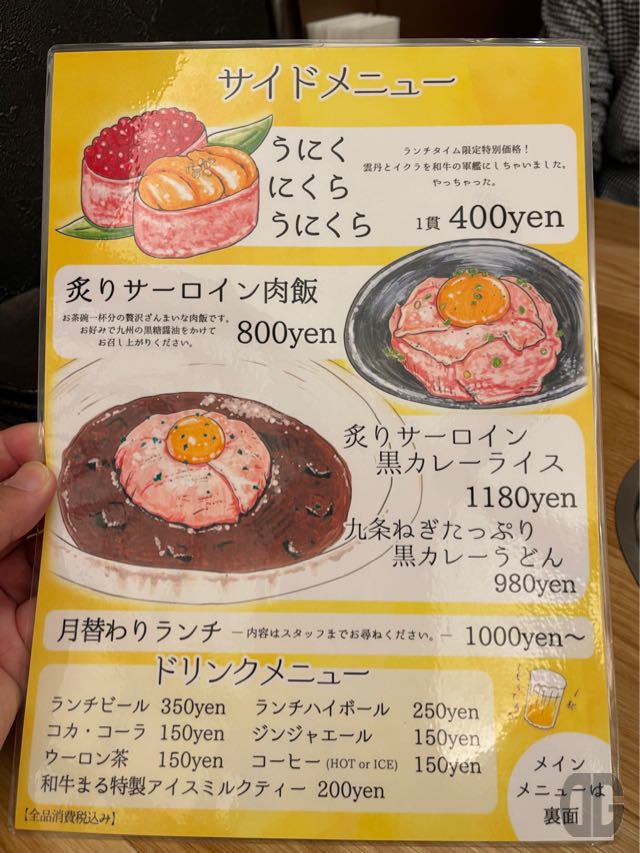 サイドメニュー
うにく
にくら
うにくら
ランチタイム限定特別価格！
雲丹とイクラを和牛の軍艦にしちゃいました。
やっちゃった。
1貫 400yen
炙りサーロイン肉飯
お茶碗一杯分の贅沢ざんまいな肉飯です。
お好みで九州の黒糖醤油をかけて
お召し上がりください。
800yen
炙りサーロイン
黒カレーライス
1180yen
九条ねぎたっぷり
黒カレーうどん
980yen
月替わりランチ ―内容はスタッフまでお尋ねください。― 1000yen～
ドリンクメニュー
ランチビール 350yen ランチハイボール 250yen
コカ・コーラ 150yen ジンジャエール 150yen
ウーロン茶 150yen コーヒー (HOT or ICE) 150yen
和牛まる特製アイスミルクティー 200yen
【全品消費税込み】
メイン
メニューは
裏面